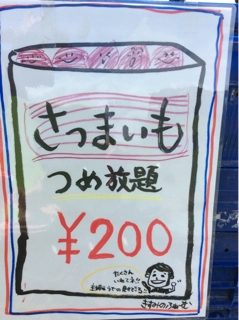 さつまいも
つめ放題
¥200
たくさん
いれてネ!!